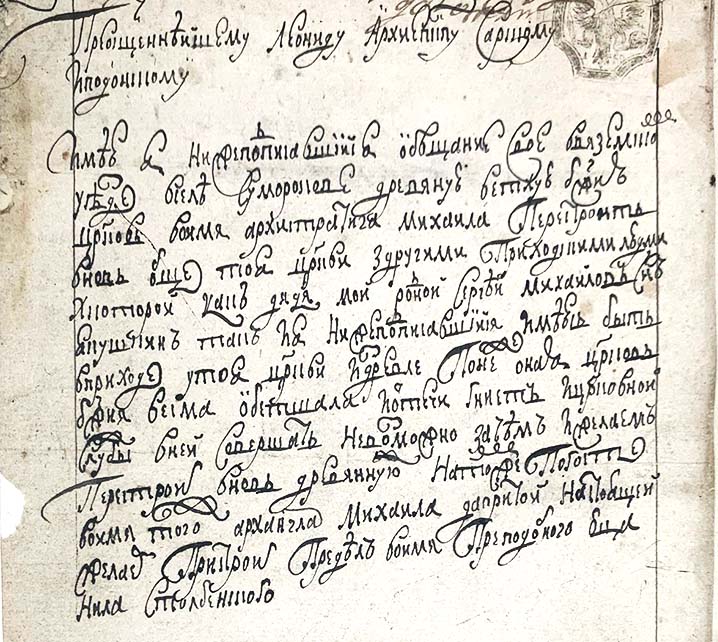 Преѡсщеннѣйшему Леониду Архиепйпу Сарскому
Иподонскому
Имѣю я Нижеподписавшийся обѣщание свое ввяземско
уѣзде вселѣ Суморокове древяную ветхую бжию
црковь воимя архистратига михаила Перестроить
вновь обще тоя цркви здругими Приходскими людми
Хкоторой какъ дядя мой родной Сергѣй михайловъ снъ
апушкинъ такъ ия Нижеподписавшийся имѣемъ быть
вприходе утоя цркви издревле Понеже оная црковь
бжия весма обетшала июттечи гниетъ ицрковной
службы вней совершать Невозможно затѣмъ ижелаемъ
Перестроить вновь древянную Натомже Погосте
воимя того архангла Михаила дапритой Настоящей
желаю Пристроить Предѣлъ воимя Преподобного оца
Нила Столбенского